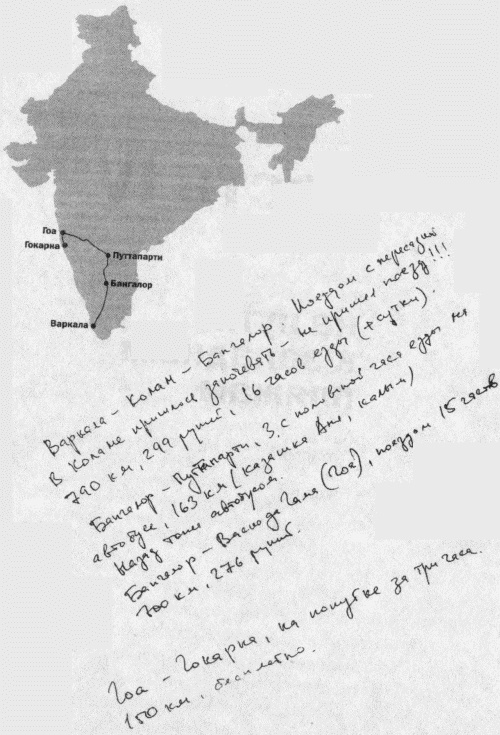 Гоа
Гокарна
Путтапарти
Бангалор
Варкала
Варкала – Колан – Бангелор. Поездом с пересадкой
В Колане пришлось заночевать – не пришел поезд!!!
790 км, 299 рупий, 26 часов езды (+ сутки).
Бангелор – Путтапарти, 3 с половиной часа езды на
автобусе, 163 км (казашка Аня, калым)
Назад тоже автобусом.
Бангелор – Васко да Гама (Гоа), поездом 15 часов
700 км, 276 рупий.
Гоа – Гокарна, на попутке за три часа.
150 км, бесплатно.